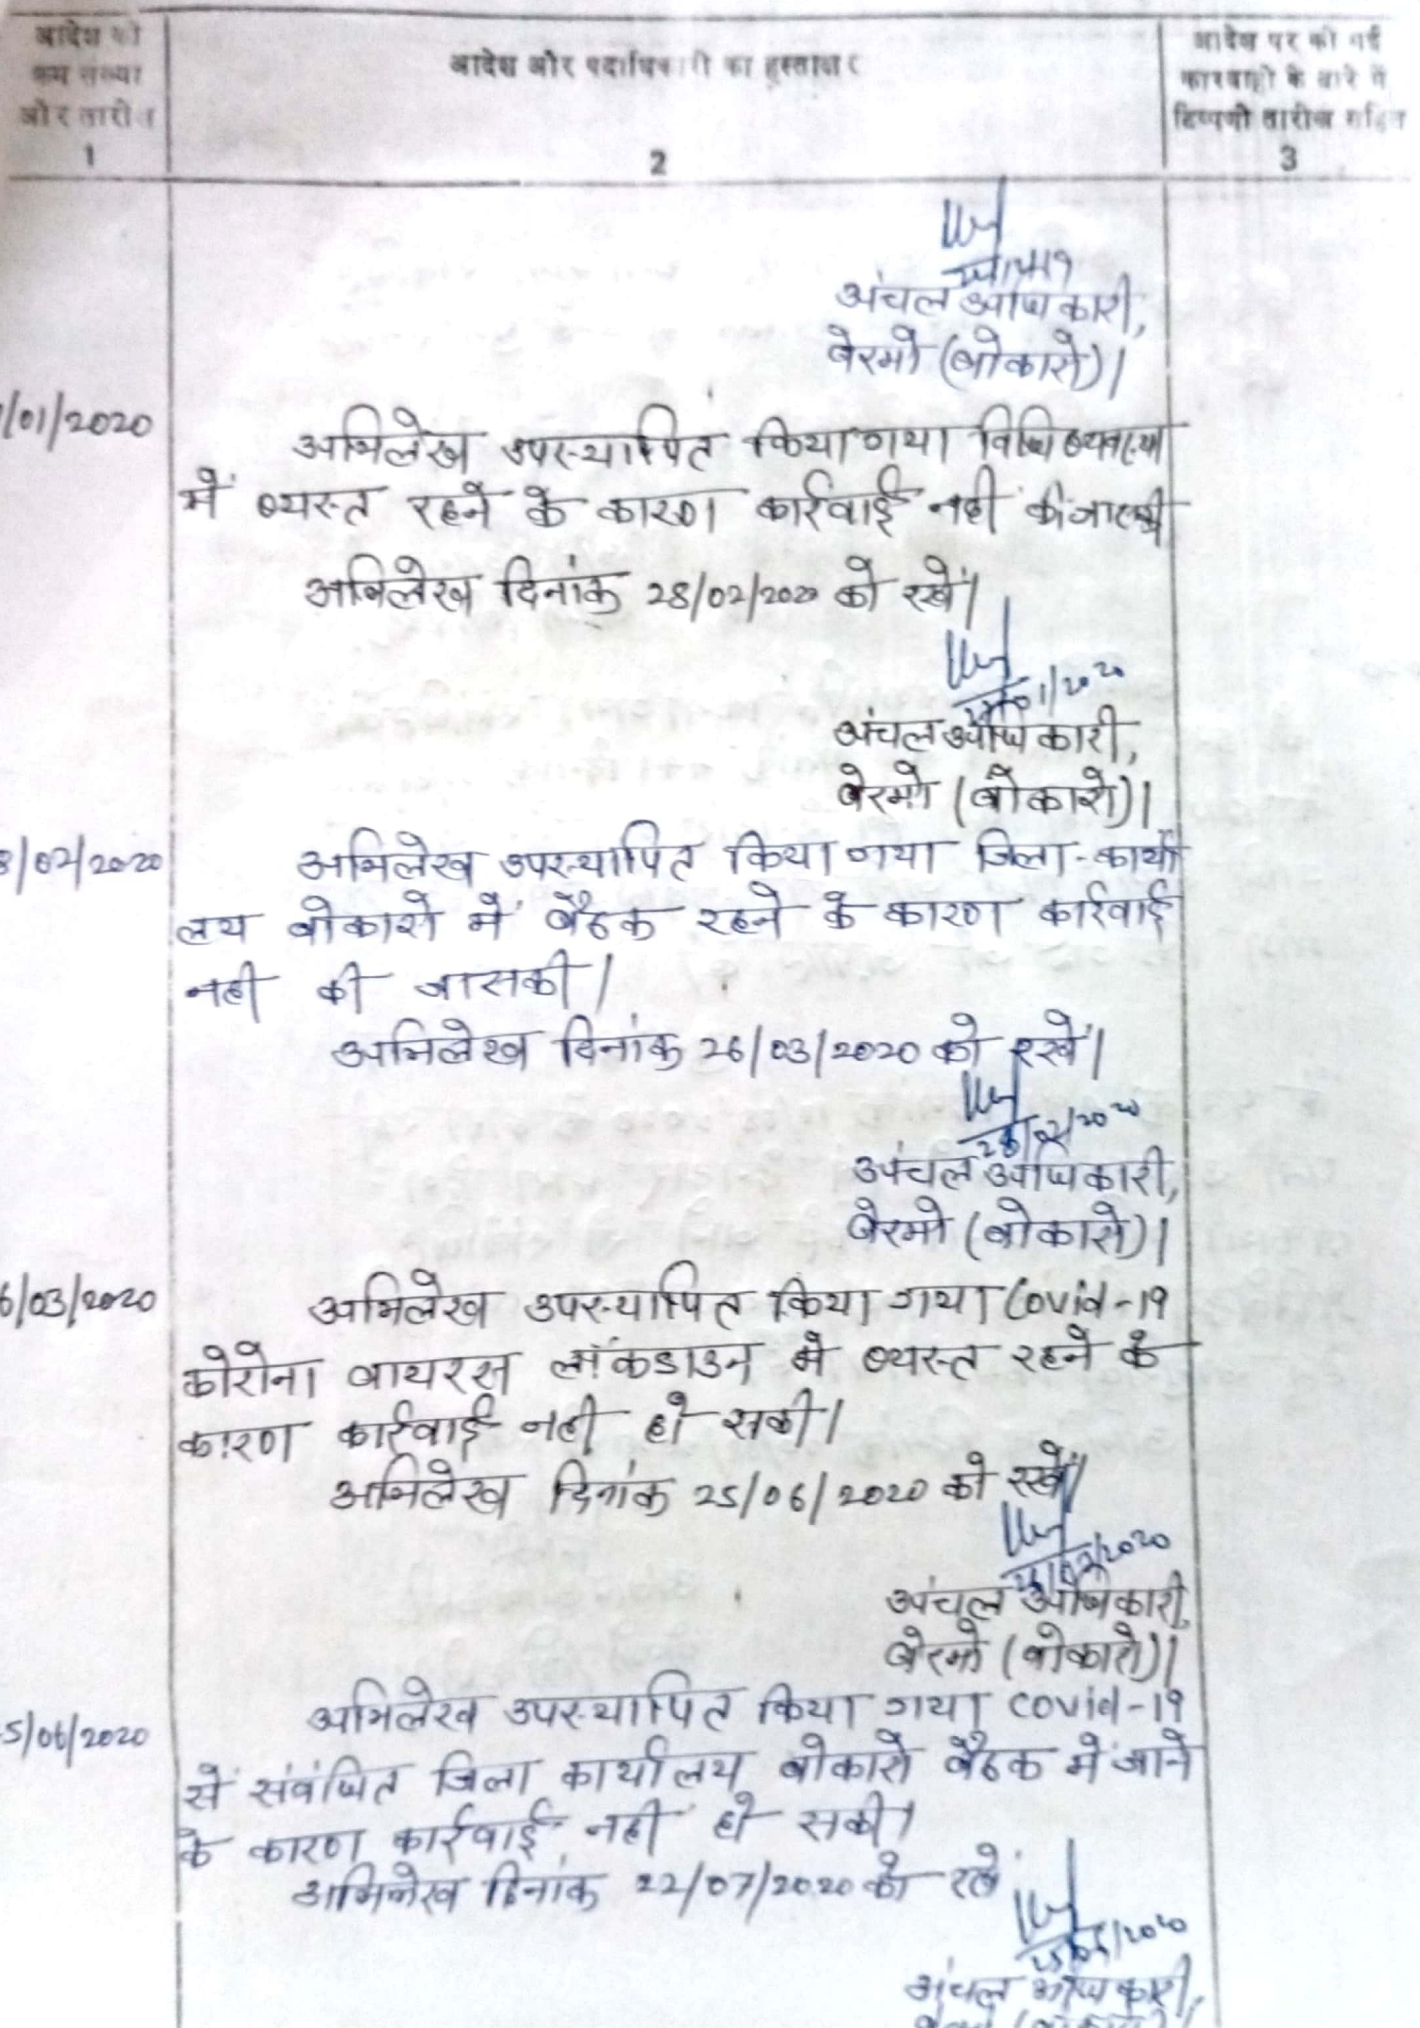 आदेश की
क्रम संख्या
और तारीख
1
आदेश और पदाधिकारी का हस्ताक्षर
2
आदेश पर की गई
कारवाही के बारे में
टिप्पणी तारीख सहित
3
अंचल अधिकारी,
बेरमो (बोकारो)।
/01/2020
अभिलेख उपस्थापित किया गया विधि व्यवस्था
में व्यस्त रहने के कारण कार्रवाई नही की जा सकी
अभिलेख दिनांक 28/02/2020 को रखें।
/01/2020
अंचल अधिकारी,
बेरमो (बोकारो)।
8/02/2020
अभिलेख उपस्थापित किया गया जिला-कार्या
लय बोकारो में बैठक रहने के कारण कार्रवाई
नही की जा सकी।
अभिलेख दिनांक 26/03/2020 को रखें।
28/02/2020
अंचल अधिकारी,
बेरमो (बोकारो)।
6/03/2020
अभिलेख उपस्थापित किया गया Covid-19
कोरोना वायरस लॉकडाउन में व्यस्त रहने के
कारण कार्रवाई नही हो सकी।
अभिलेख दिनांक 25/06/2020 को रखें।
26/03/2020
अंचल अधिकारी,
बेरमो (बोकारो)।
5/06/2020
अभिलेख उपस्थापित किया गया covid-19
से संबंधित जिला कार्यालय बोकारो बैठक में जाने
के कारण कार्रवाई नही हो सकी।
अभिलेख दिनांक 22/07/2020 को रखें
25/06/2020
अंचल अधिकारी,